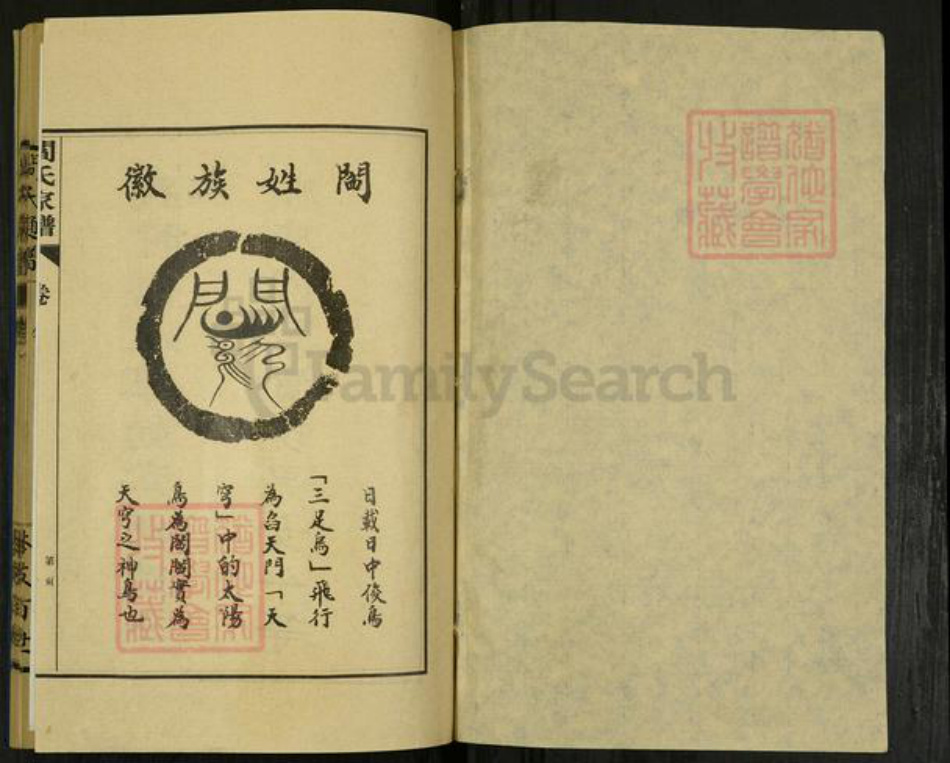 閻姓族徽
日載日中俊鳥
「三足鳥」飛行
為臽天門「天
穹」中的太陽
鳥為閻閻實為
天穹之神鳥也
閻氏家譜
卷
FamilySearch
猶他家
譜學會
收藏
猶他家
譜學會
收藏